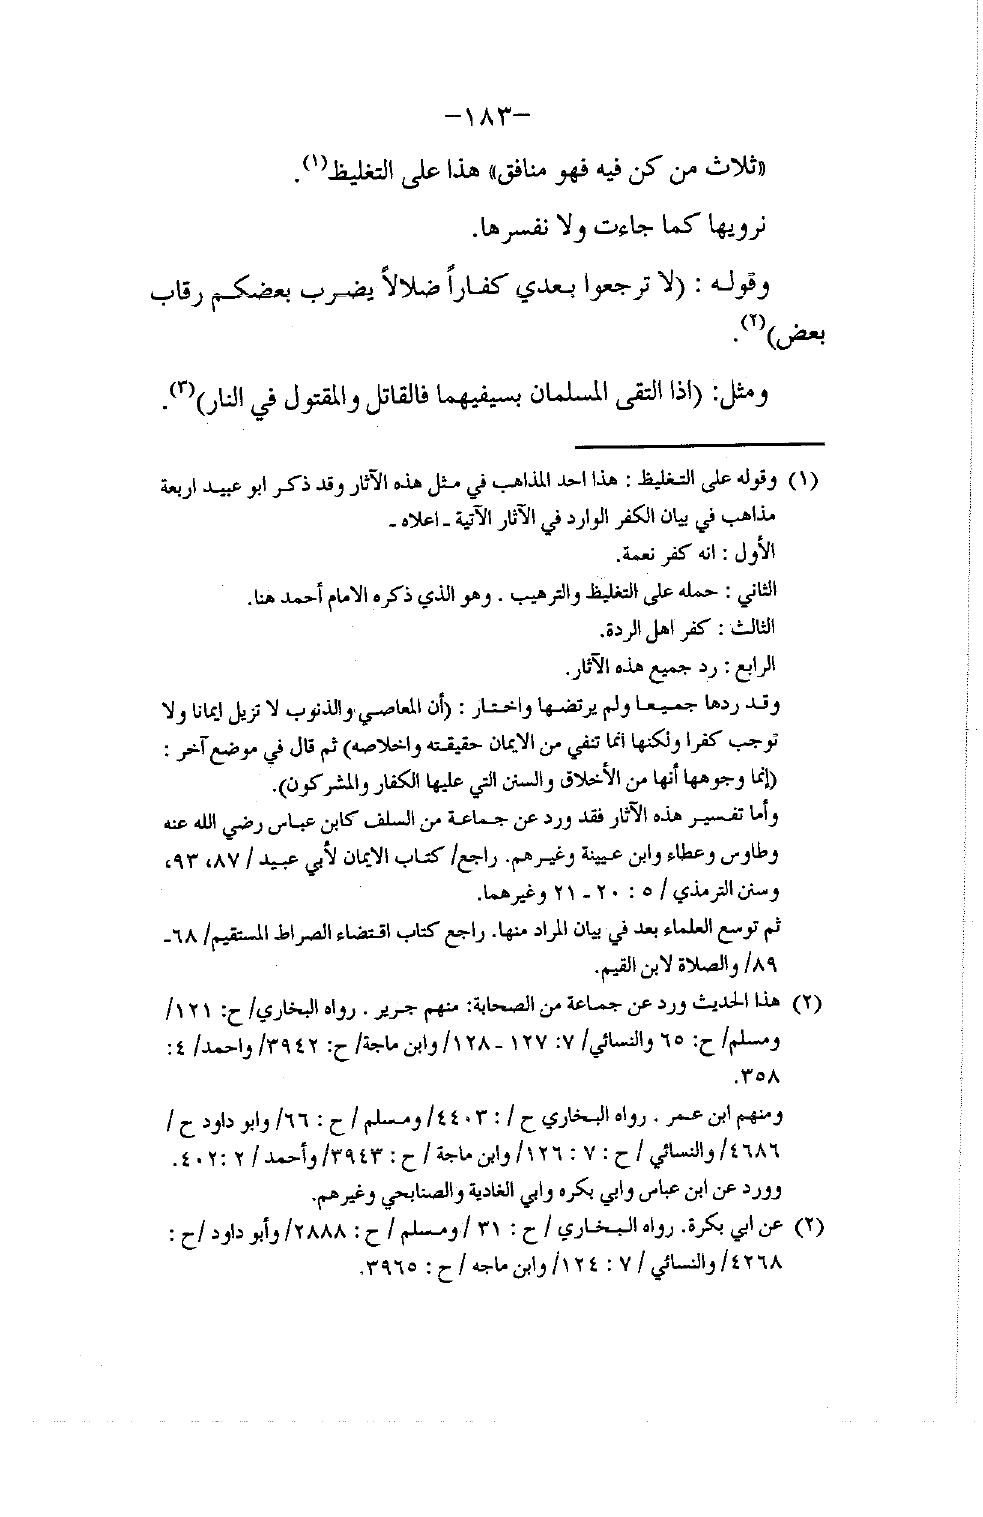 -١٨٣-
«ثلاث من كن فيه فهو منافق» هذا على التغليظ(١).
نرويها كما جاءت ولا نفسرها.
وقوله : (لا ترجعوا بعدي كفاراً ضلالاً يضرب بعضكم رقاب
بعض)(٢).
ومثل: (اذا التقى المسلمان بسيفيهما فالقاتل والمقتول في النار)(٣).
(١) وقوله على التغليظ : هذا احد المذاهب في مثل هذه الآثار وقد ذكر ابو عبيد اربعة
مذاهب في بيان الكفر الوارد في الآثار الآتية ـ اعلاه ـ
الأول : انه كفر نعمة.
الثاني : حمله على التغليظ والترهيب . وهو الذي ذكره الامام أحمد هنا.
الثالث : كفر اهل الردة.
الرابع : رد جميع هذه الآثار.
وقد ردها جميعا ولم يرتضها واختار : (أن المعاصي والذنوب لا تزيل ايمانا ولا
توجب كفرا ولكنها انما تنفي من الايمان حقيقته واخلاصه) ثم قال في موضع آخر :
(إنما وجوهها أنها من الأخلاق والسنن التي عليها الكفار والمشركون).
وأما تفسير هذه الآثار فقد ورد عن جماعة من السلف كابن عباس رضي الله عنه
وطاوس وعطاء وابن عيينة وغيرهم. راجع/ كتاب الايمان لأبي عبيد / ٨٧، ٩٣،
وسنن الترمذي / ٥ : ٢٠ ـ ٢١ وغيرهما.
ثم توسع العلماء بعد في بيان المراد منها. راجع كتاب اقتضاء الصراط المستقيم/ ٦٨ـ
٨٩/ والصلاة لابن القيم.
(٢) هذا الحديث ورد عن جماعة من الصحابة: منهم جرير . رواه البخاري/ ح: ١٢١/
ومسلم/ ح: ٦٥ والنسائي/ ٧: ١٢٧ ـ ١٢٨/ وابن ماجة/ ح: ٣٩٤٢/ واحمد/ ٤:
٣٥٨.
ومنهم ابن عمر . رواه البخاري ح / : ٤٤٠٣/ ومسلم / ح : ٦٦/ وابو داود ح /
٤٦٨٦/ والنسائي / ح : ٧ : ١٢٦/ وابن ماجة / ح : ٣٩٤٣/ وأحمد / ٢ :٤٠٢.
وورد عن ابن عباس وابي بكره وابي الغادية والصنابحي وغيرهم.
(٢) عن ابي بكرة. رواه البخاري / ح : ٣١ /ومسلم / ح : ٢٨٨٨/ وأبو داود /ح :
٤٢٦٨/ والنسائي / ٧ : ١٢٤/ وابن ماجه / ح : ٣٩٦٥.